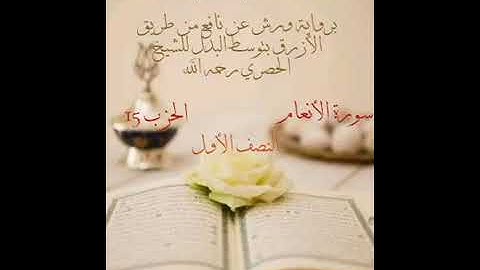 برواية ورش عن نافع من طريق
الأزرق بتوسط البدل للشيخ
الحصري رحمه الله
سورة الأنعام الحزب 15
النصف الأول